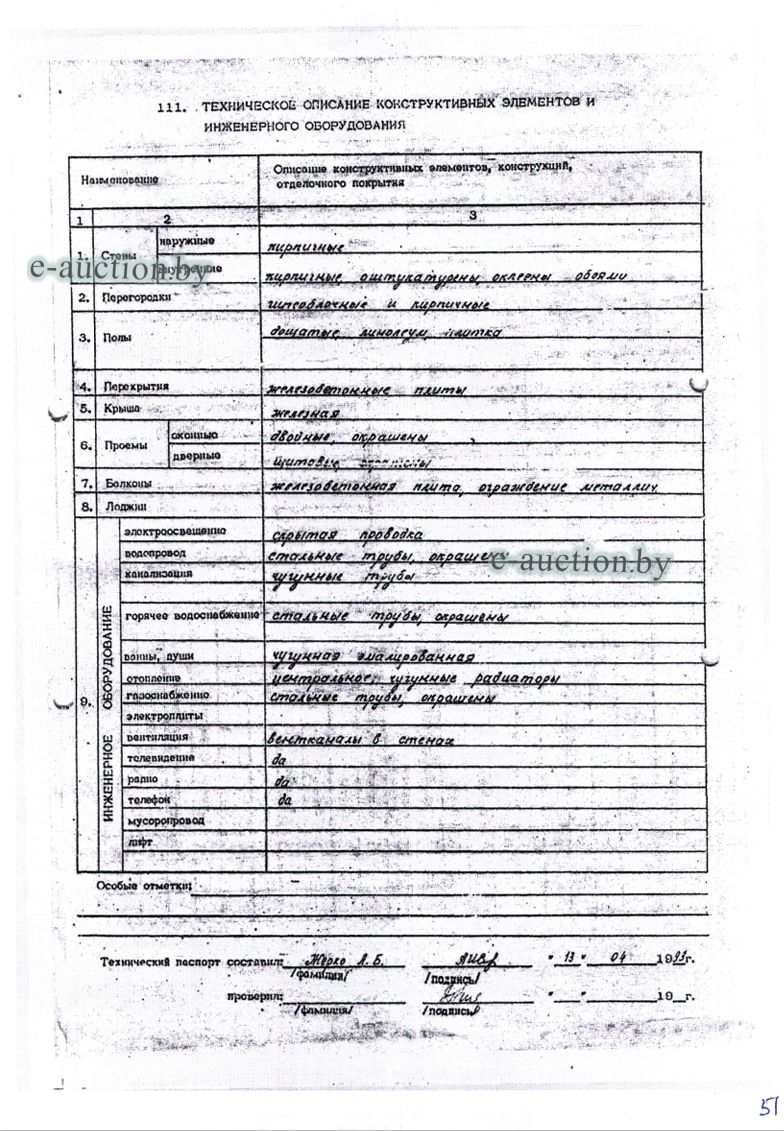 111. ТЕХНИЧЕСКОЕ ОПИСАНИЕ КОНСТРУКТИВНЫХ ЭЛЕМЕНТОВ И
ИНЖЕНЕРНОГО ОБОРУДОВАНИЯ
Наименование
Описание конструктивных элементов, конструкций,
отделочного покрытия
1 2 3
1. Стены наружные кирпичные
внутренние кирпичные, оштукатурены, оклеены обоями
e-auction.by
2. Перегородки гипсоблочные и кирпичные
3. Полы дощатые, линолеум, плитка
4. Перекрытия железобетонные плиты
5. Крыша железная
6. Проемы оконные двойные, окрашены
дверные щитовые
7. Балконы железобетонная плита, ограждение металлич.
8. Лоджии
9. ИНЖЕНЕРНОЕ ОБОРУДОВАНИЕ
электроосвещение скрытая проводка
водопровод стальные трубы, окрашены
e-auction.by
канализация чугунные трубы
горячее водоснабжение стальные трубы, окрашены
ванны, души чугунная эмалированная
отопление центральное, чугунные радиаторы
газоснабжение стальные трубы, окрашены
электроплиты
вентиляция вентканалы в стенах
телевидение да
радио да
телефон да
мусоропровод
лифт
Особые отметки:
Технический паспорт составил: Жерко Л. Б. "13" 04 1993г.
/фамилия/ /подпись/
проверил: " " 19 г.
/фамилия/ /подпись/
51